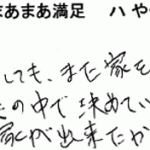 まあまあ満足 ハ や
しても、また家を
の中で決めてい
家が出来たか